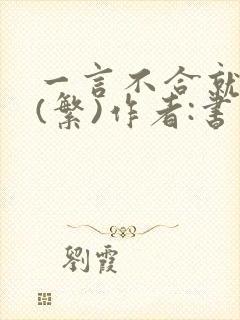 一言不合就
(繁)作者:書
劉霞